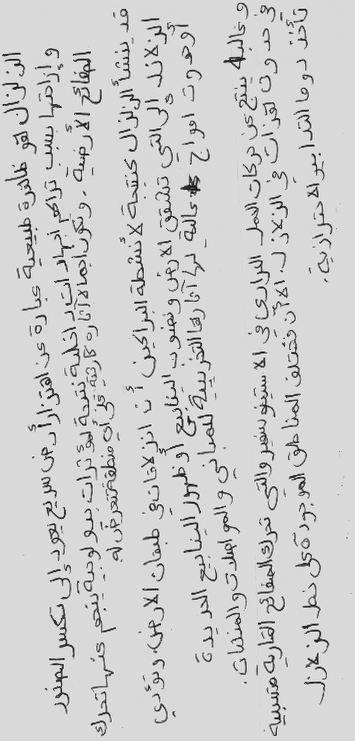 الزلزال هو ظاهرة طبيعية عبارة عن اهتزاز أرضي سريع يعود إلى تكسر الصخور
وإزاحتها بسبب تراكم اجهادات داخلية نتيجة لمؤثرات جيولوجية ينجم عنها تحرك
الصفائح الأرضية. وتكون اجمالا آثاره كارثية على أي منطقة تتعرض له
قد ينشأ الزلزال كنتيجة لأنشطة البراكين أن انزلاقات في طبقات الارض. وتؤدي
الزلازل إلى التي تشقق الارض ونضوب الينابيع أو ظهور الينابيع الجديدة
أو حدوث امواج عالية لها آثارها التخريبية للمباني والمواصلات والمنشآت.
وغالبا ينتج عن حركات الحمل الحراري في الاستينوسفير والتي تحرك الصفائح القارية متسببة
في حدوث هزات في الزلازل. الا أن تختلف المناطق الموجودة على خط الزلازل
تأخذ دوما التدابير الاحترازية.